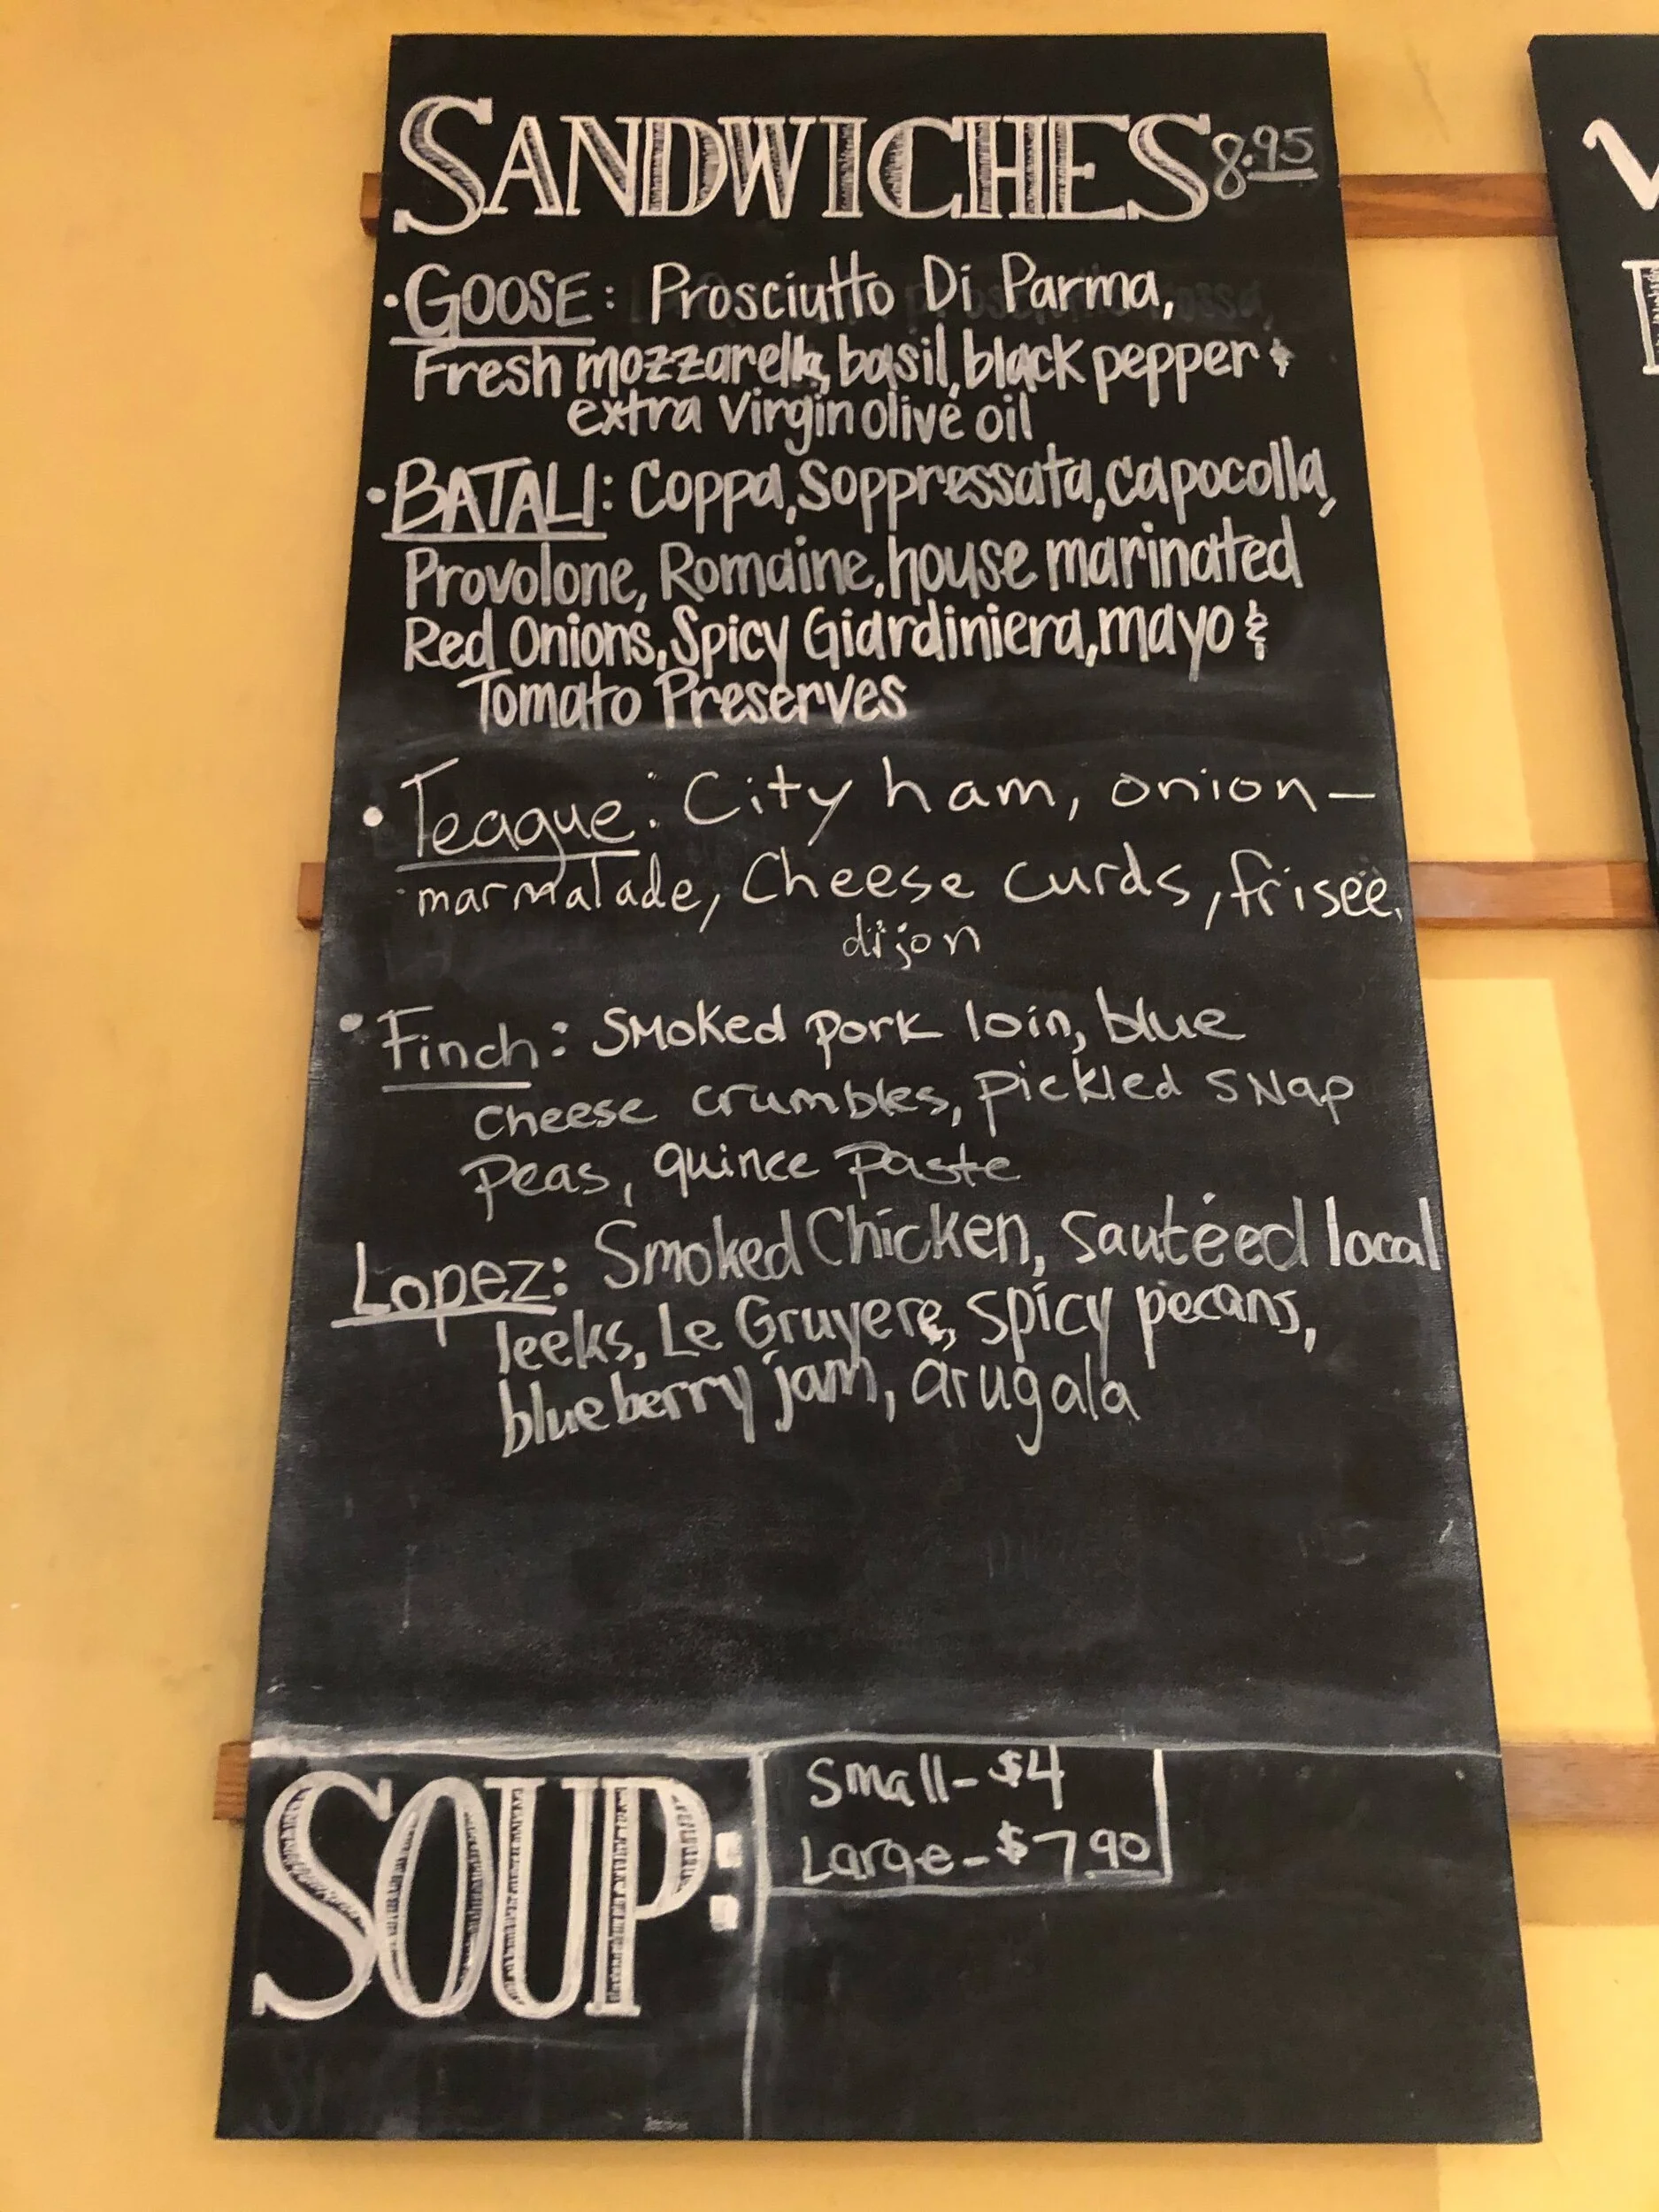 SANDWICHES 8.95
• GOOSE: Prosciutto Di Parma,
Fresh mozzarella, basil, black pepper &
extra Virgin olive oil
• BATALI: Coppa, Soppressata, capocolla,
Provolone, Romaine, house marinated
Red Onions, Spicy Giardiniera, mayo &
Tomato Preserves
• Teague: City ham, onion-
marmalade, Cheese curds, frisée,
dijon
• Finch: Smoked pork loin, blue
cheese crumbles, pickled snap
peas, quince paste
Lopez: Smoked Chicken, sautéed local
leeks, Le Gruyere, spicy pecans,
blueberry jam, arugala
SOUP:
Small - $4
Large - $7.90